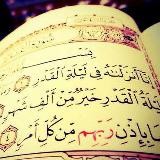 بِسْمِ
إِنَّا أَنزَلْنَٰهُ فِي لَيْلَةِ الْقَدْرِ
لَيْلَةُ الْقَدْرِ خَيْرٌ مِّنْ أَلْفِ شَهْرٍ
بِإِذْنِ رَبِّهِم مِّن كُلِّ أَمْرٍ